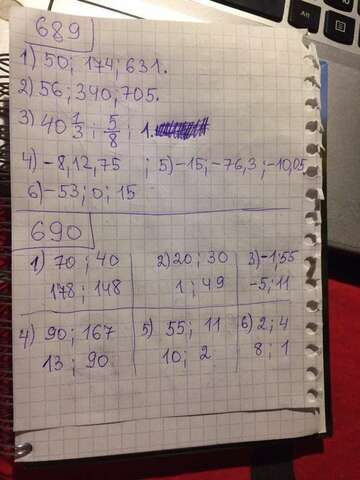 689
1) 50; 174; 631.
2) 56; 340; 705.
3) 40 1/3; 5/8; 1.
4) -8,12,75 ; 5) -15; -76,3; -10,05
6) -53; 0; 15
690
1) 70; 40 2) 20; 30 3) -1; 55
178; 148 1; 49 -5; 11
4) 90; 167 5) 55; 11 6) 2; 4
13; 90 10; 2 8; 1